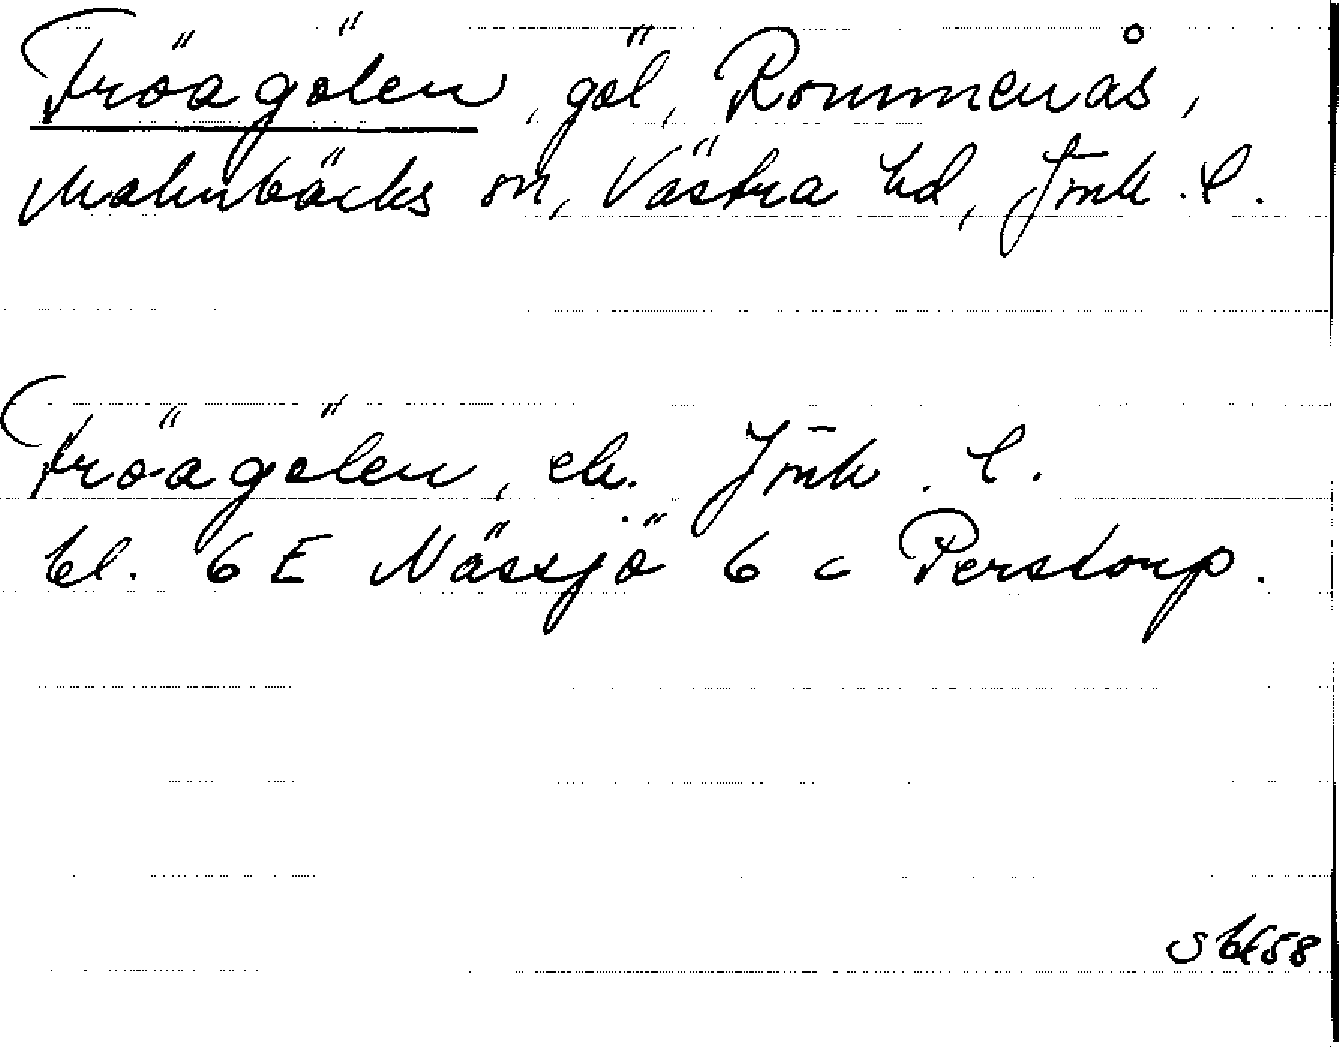 Fröagölen, göl, Rommenås,
Malmbäcks sn, Västra hd, Jönk. l.
Fröagölen, ek. Jönk. l.
bl. 6 E Nässjö 6 c Perstorp.